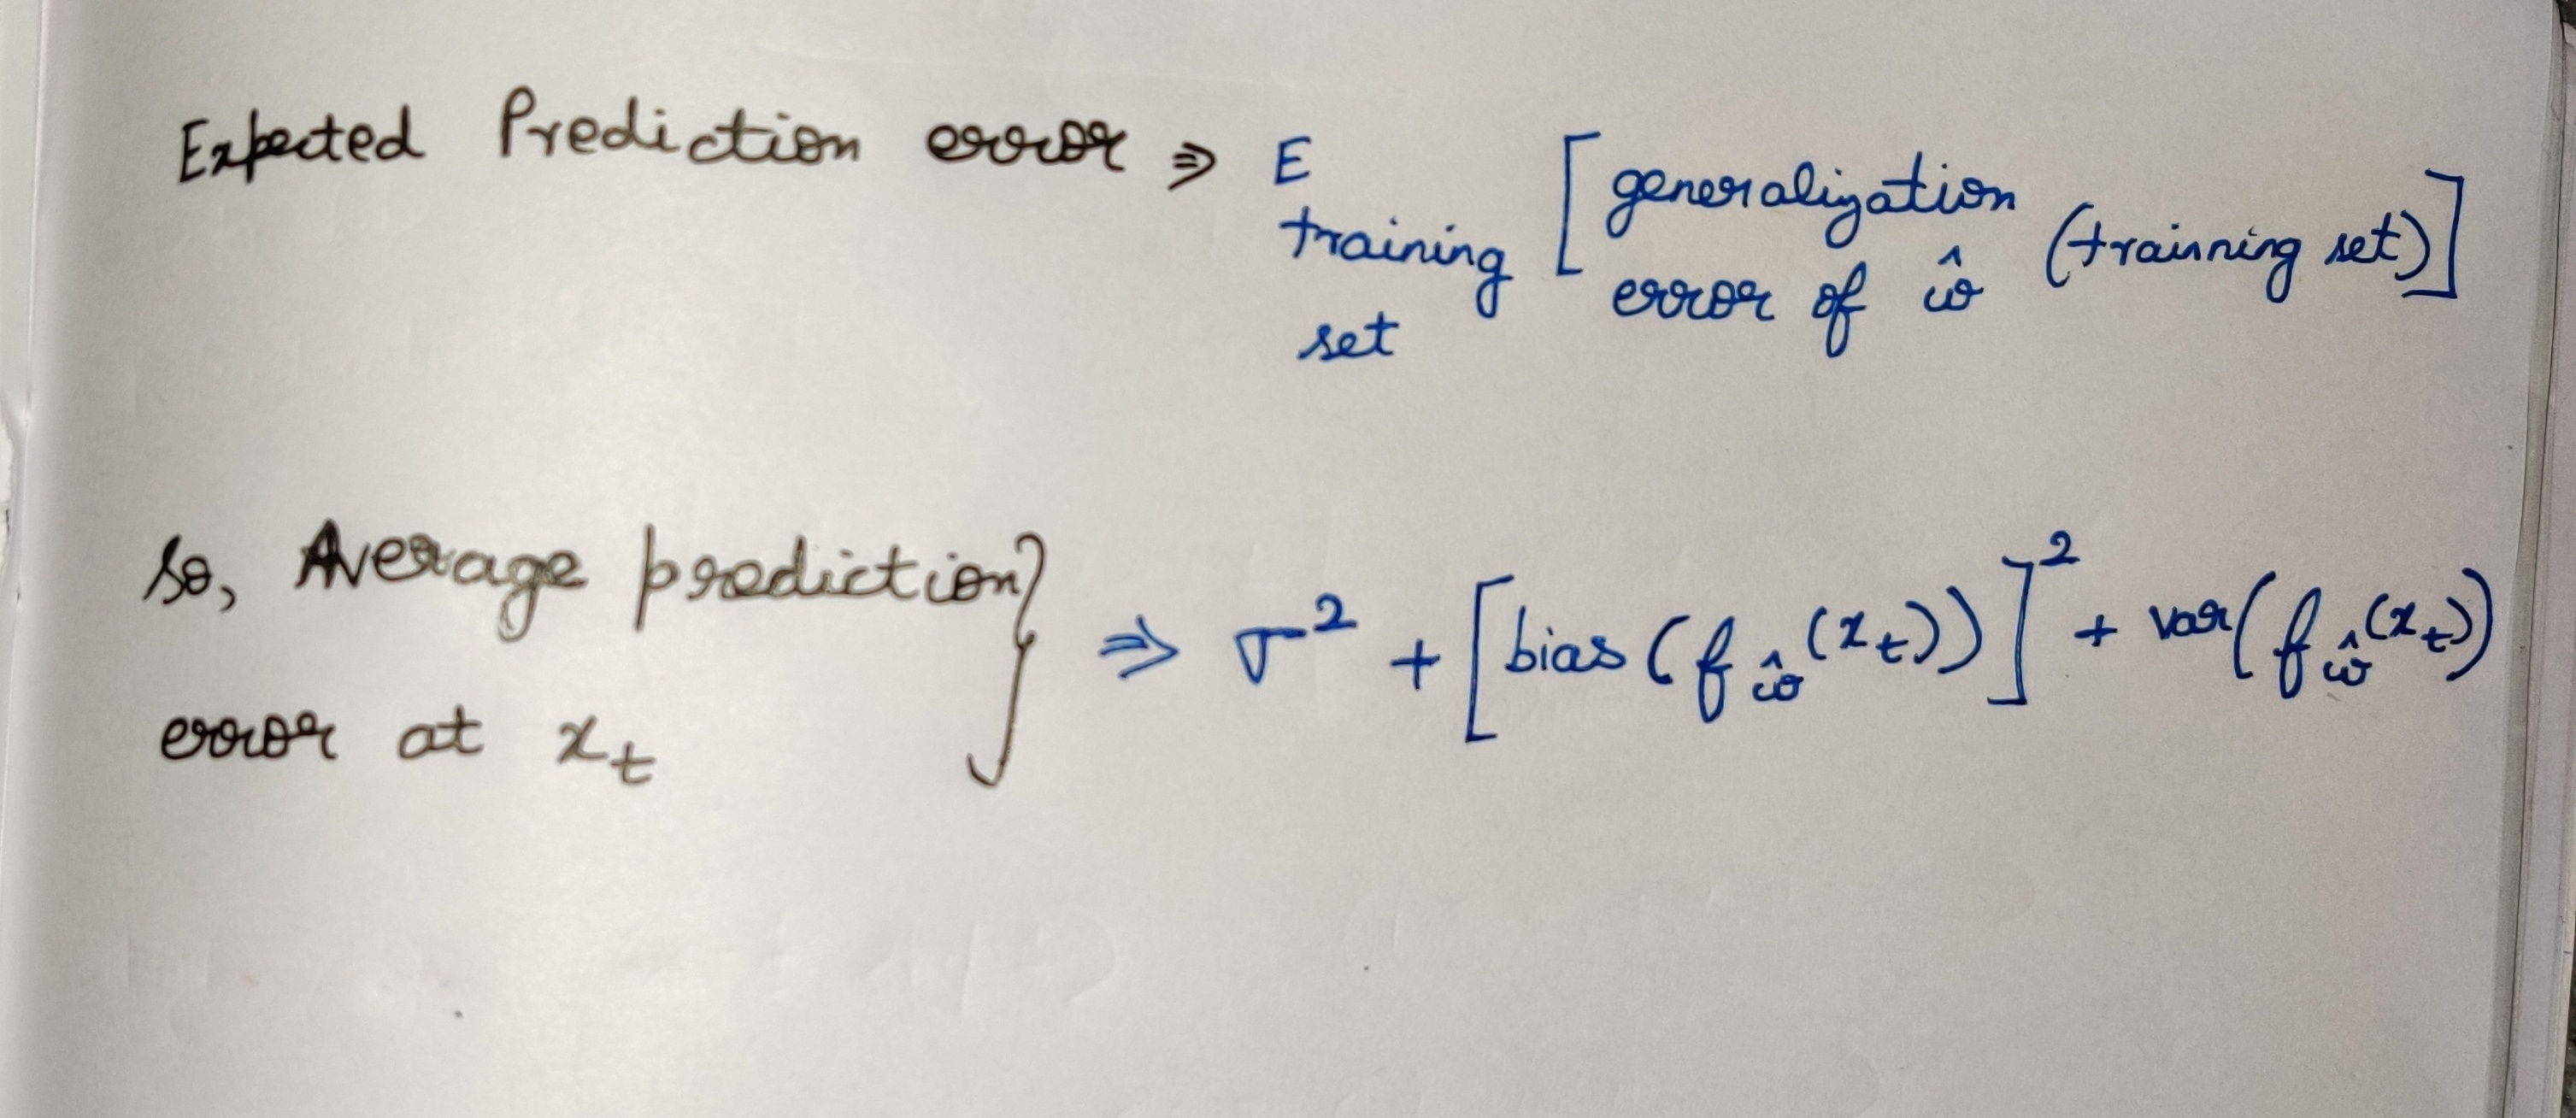 Expected Prediction error ⇒ E training set [generalization error of ŵ (trainning set)]
so, Average prediction
error at x_t } ⇒ σ² + [bias (f_ŵ(x_t))]² + var(f_ŵ(x_t))